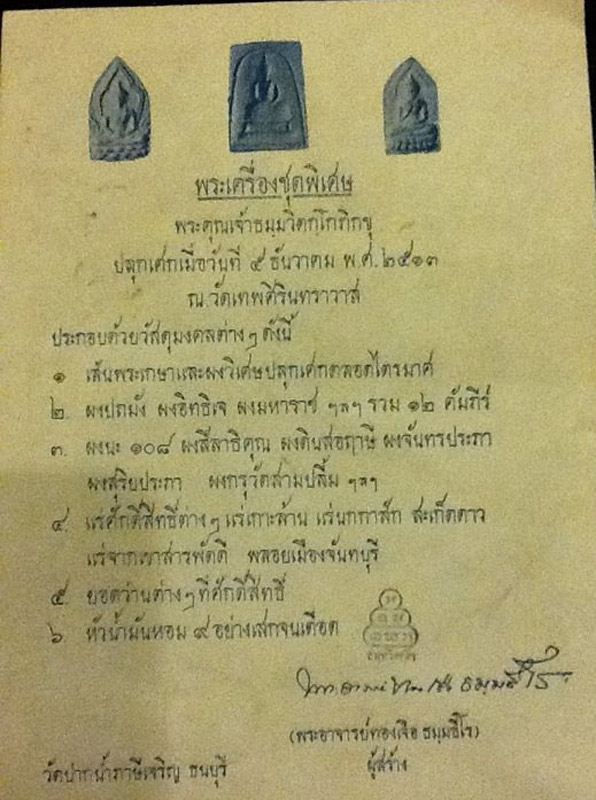 พระเครื่องชุดพิเศษ
พระคุณเจ้าธมฺมวิตกฺโกภิกขุ
ปลุกเศกเมื่อวันที่ ๕ ธันวาคม พ.ศ. ๒๕๑๓
ณ.วัดเทพศิรินทราวาส
ประกอบด้วยวัสดุมงคลต่าง ๆ ดังนี้
๑ เส้นพระเกษาและผงวิเศษปลุกเศกตลอดไตรมาศ
๒. ผงปถมัง ผงอิทธิเจ ผงมหาราช ฯลฯ รวม ๑๒ คัมภีร์
๓. ผงนะ ๑๐๘ ผงสีลาธิคุณ ผงดินสอฤาษี ผงจันทรประภา
ผงสุริยประภา ผงกรุวัดสามปลื้ม ฯลฯ
๔. แร่ศักดิ์สิทธิ์ต่าง ๆ แร่เกาะล้าน แร่นกกาสัก สะเก็ดดาว
แร่จากเขาสารพัดดี พลอยเมืองจันทบุรี
๕. ยอดว่านต่าง ๆ ที่ศักดิ์สิทธิ์
๖. หัวน้ำมันหอม ๙ อย่างเสกจนเดือด
ธมฺมธีโร
(พระอาจารย์ทองเจือ ธมฺมธีโร)
วัดปากน้ำภาษีเจริญ ธนบุรี
ผู้สร้าง